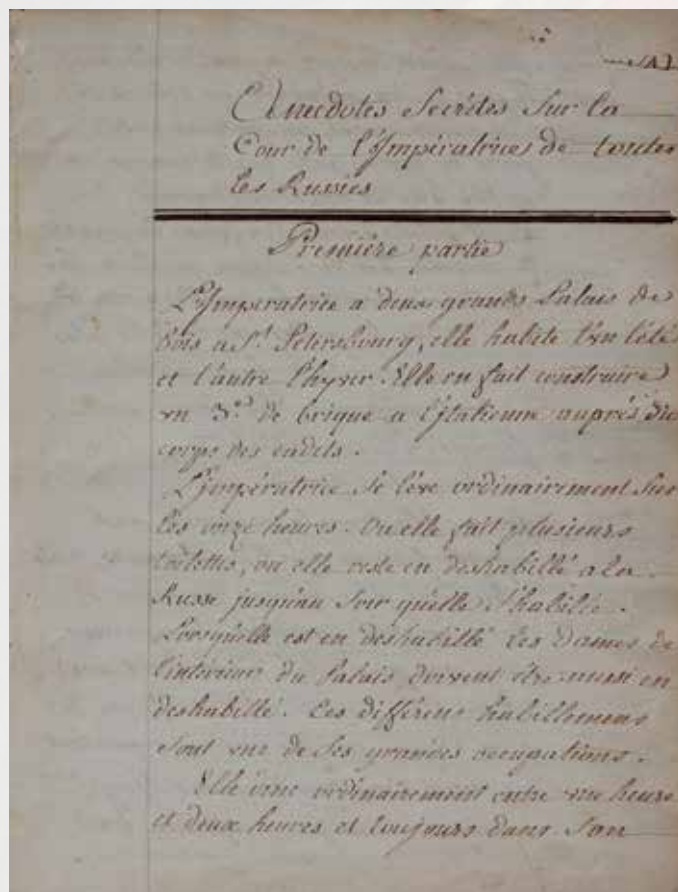 Anecdotes Secrétes Sur la
Cour de l'Impératrices de toutes
les Russies
Premiére partie
L'Imperatrice a deux grands Palais de
bois a St. Petersbourg, elle habite l'un l'été
et l'autre l'hyver. Elle en fait construire
un 3.e de brique a auprés du
corps des cadets.
L'impératrice se léve ordinairement Sur
les onze heures. Ou elle fait plusieurs
toilettes, ou elle reste en deshabillé a la
Russe jusqu'au Soir qu'elle s'habille.
Lorsqu'elle est en deshabillé les Dames de
l'interieur du Palais doivent étre aussi en
deshabillé. Ces différens habillemens
Sont une de Ses grandes occupations.
Elle dine ordinairement entre une heure
et deux heures et toujours dans Son